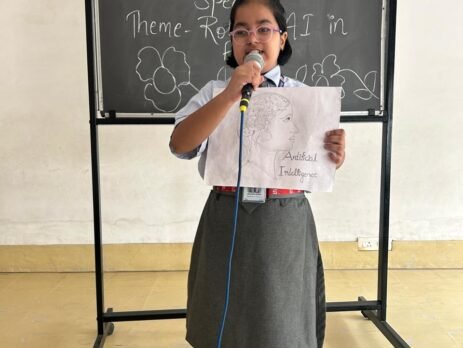 Spe
Theme- Ro AI in
Artificial
Intelligence